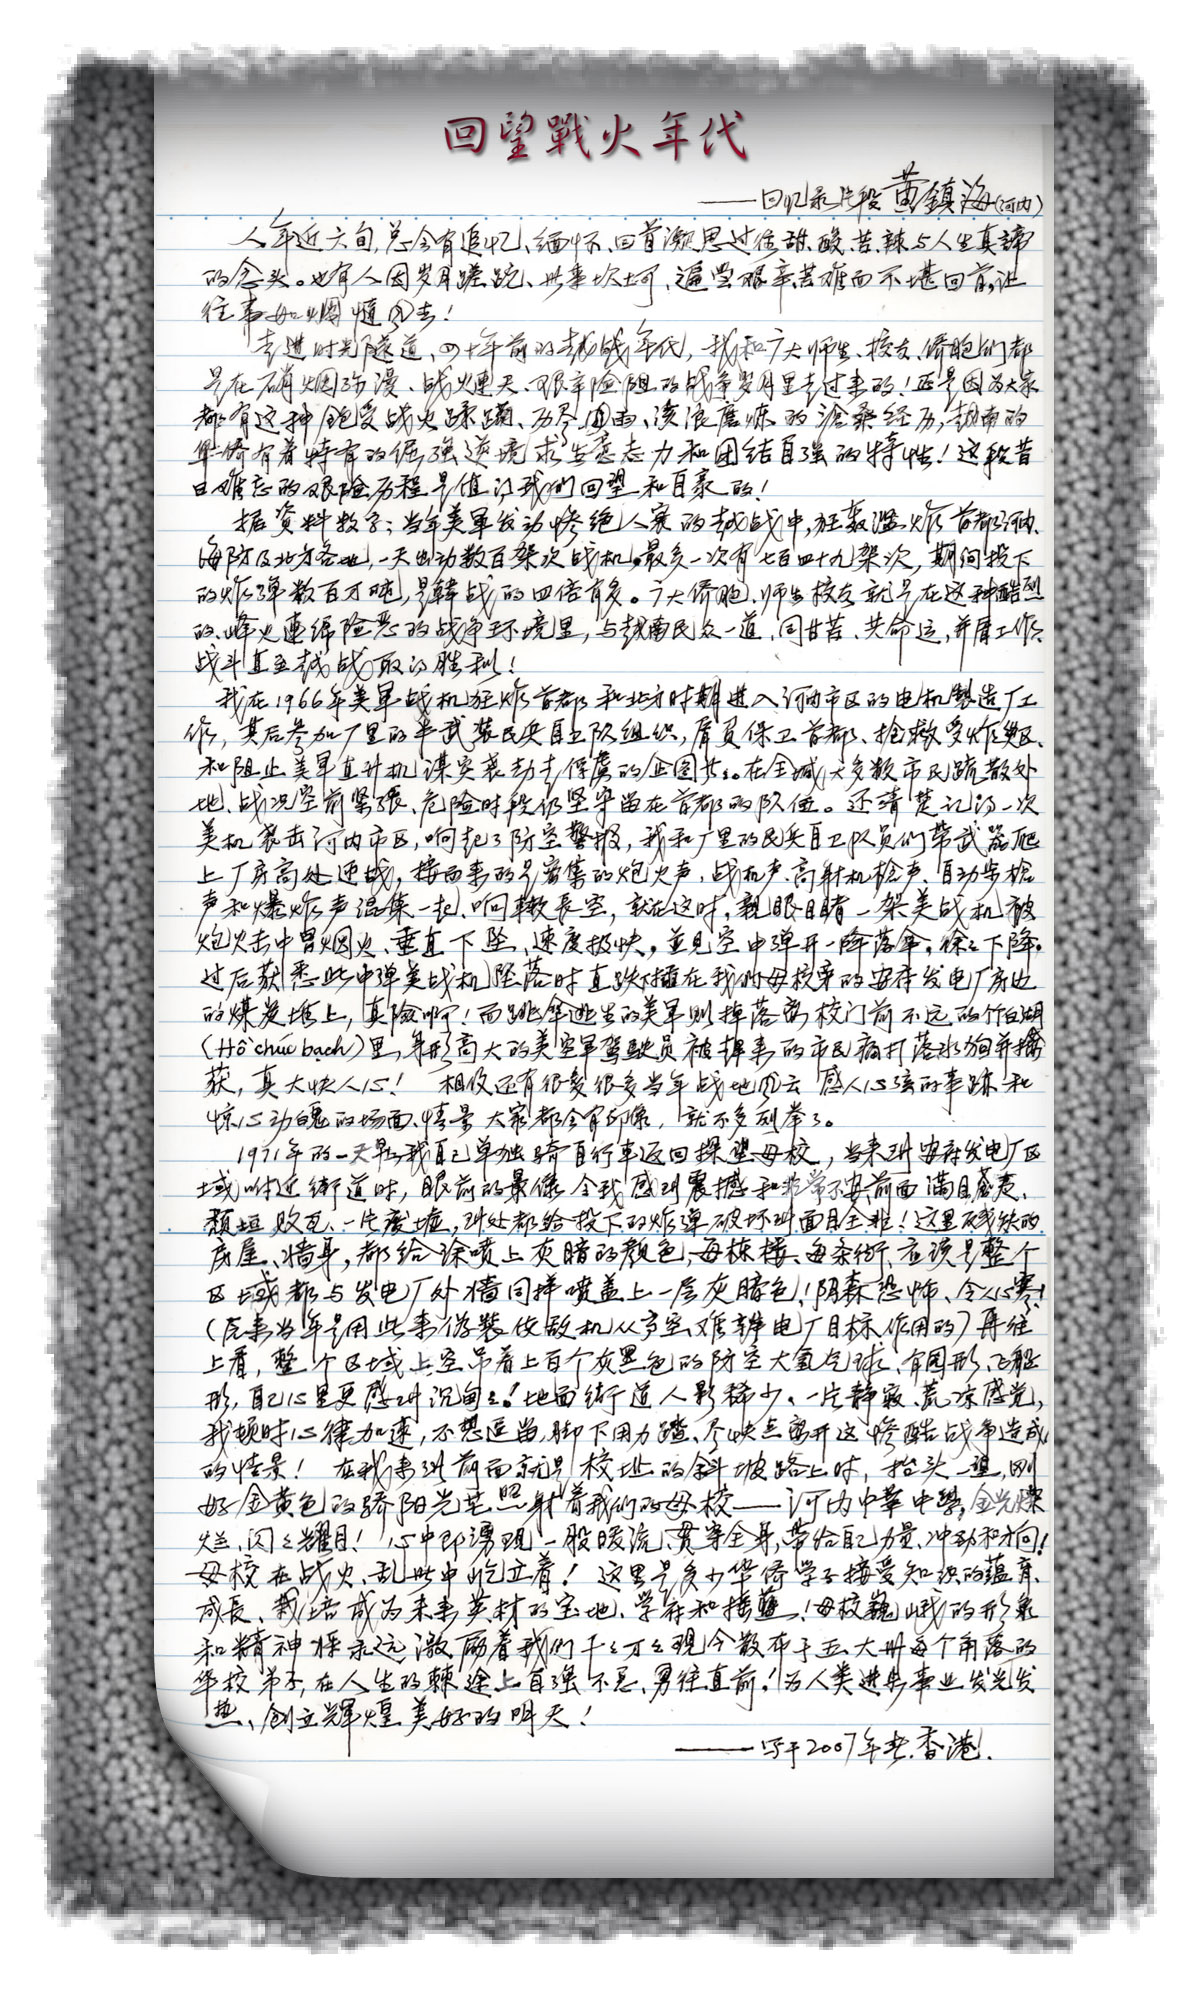 回望戰火年代
——回忆录片段 黄鎮海(河内)
人年近六旬,总会有追忆、缅怀、回首凝思过往甜、酸、苦、辣与人生真諦
的念头。也有人因岁月蹉跎、世事坎坷、遍尝艰辛苦难而不堪回首,让
往事如烟随风去!
走進时光隧道,四十年前的越战年代,我和广大师生、校友、侨胞们都
是在硝烟弥漫、战火連天、艰辛险阻的战争岁月里走过来的!正是因为大家
都有这种飽受战火蹂躏、历尽風雨、滚浪磨炼的滄桑经历,越南的
华侨有着特有的倔强逆境求生意志力和团结自强的特性!这段昔
日难忘的艰险历程是值得我们回望和自豪的!
据资料数字:当年美軍发动惨绝人寰的越战中,狂轰滥炸首都河内、
海防及北方各地,一天出动数百架次战机,最多一次有七百四十九架次,期间投下
的炸弹数百万吨,是韓战的四倍有多。广大侨胞、师生校友就是在这种酷烈
的烽火連绵险恶的战争环境里,与越南民众一道、同甘苦、共命运,并肩工作、
战斗直至越战取得胜利!
我在1966年美軍战机狂炸首都和北方时期進入河内市区的电机製造厂工
作,其后参加厂里的半武装民兵自卫队组织,肩負保卫首都、抢救受炸災区、
和阻止美軍直升机谋突袭劫走俘虜的企图等。在全城大多数市民疏散外
地、战况空前紧張、危险时段仍坚守留在首都的队伍。还清楚记得一次
美机袭击河内市区,响起了防空警报,我和厂里的民兵自卫队员们带武器爬
上厂房高处迎战,接而来的是密集的炮火声,战机声、高射机枪声、自动步枪
声和爆炸声混集一起、响轍長空,就在这时,親眼目睹一架美战机被
炮火击中冒烟火、垂直下坠、速度极快,並見空中弹开一降落傘,徐々下降。
过后获悉此中弹美战机坠落时直跌下插在我們母校旁的安府发电厂旁边
的煤炭堆上,真险啊!而跳傘逃生的美軍则掉落离校门前不远的竹白湖
(Hồ chúc bạch)里,身形高大的美空軍驾駛员被趕来的市民痛打落水狗并擒
获,真大快人心! 相信还有很多很多当年战地風云 感人心弦的事跡和
惊心动魄的场面、情景 大家都会有印像,就不多列举了。
1971年的一天早,我自己单独骑自行车返回探望母校,当来到安府发电厂区
域附近街道时,眼前的景像令我感到震撼和非常不安,前面滿目蒼夷、
颓垣败瓦、一片废墟,到处都给投下的炸弹破坏到面目全非!这里残缺的
房屋、墙身,都给涂喷上灰暗的颜色,每栋楼、每条街、应该是整个
区域都与发电厂外墙同样喷盖上一层灰暗色!阴森恐怖、令人心寒!
(原来当年是用此来伪装使敌机从高空难辨电厂目标作用的)再往
上看,整个区域上空吊着上百个灰黑色的防空大氢气球、有园形、飞船
形,自己心里更感到沉甸々!地面街道人影稀少、一片静寂、荒凉感觉,
我顿时心律加速,不想逗留,脚下用力踏、尽快点离开这惨酷战争造成
的情景! 在我来到前面就是校址的斜坡路上时,抬头一望,刚
好金黄色的骄阳光芒照射着我们的母校——河内中華中學,金光燦
烂、闪々耀目! 心中即湧現一股暖流、贯穿全身,带给自己力量、冲劲和方向!
母校在战火、乱世中屹立着! 这里是多少华侨学子接受知识的蕴育、
成長、栽培成为未来英材的宝地、学府和摇篮!母校巍峨的形象
和精神将永远激励着我们千々万々現今散布于五大州每个角落的
华校弟子,在人生的棘途上自强不息、勇往直前!为人类進步事业发光发
热、创立輝煌美好的明天!
——写于2007年冬.香港.